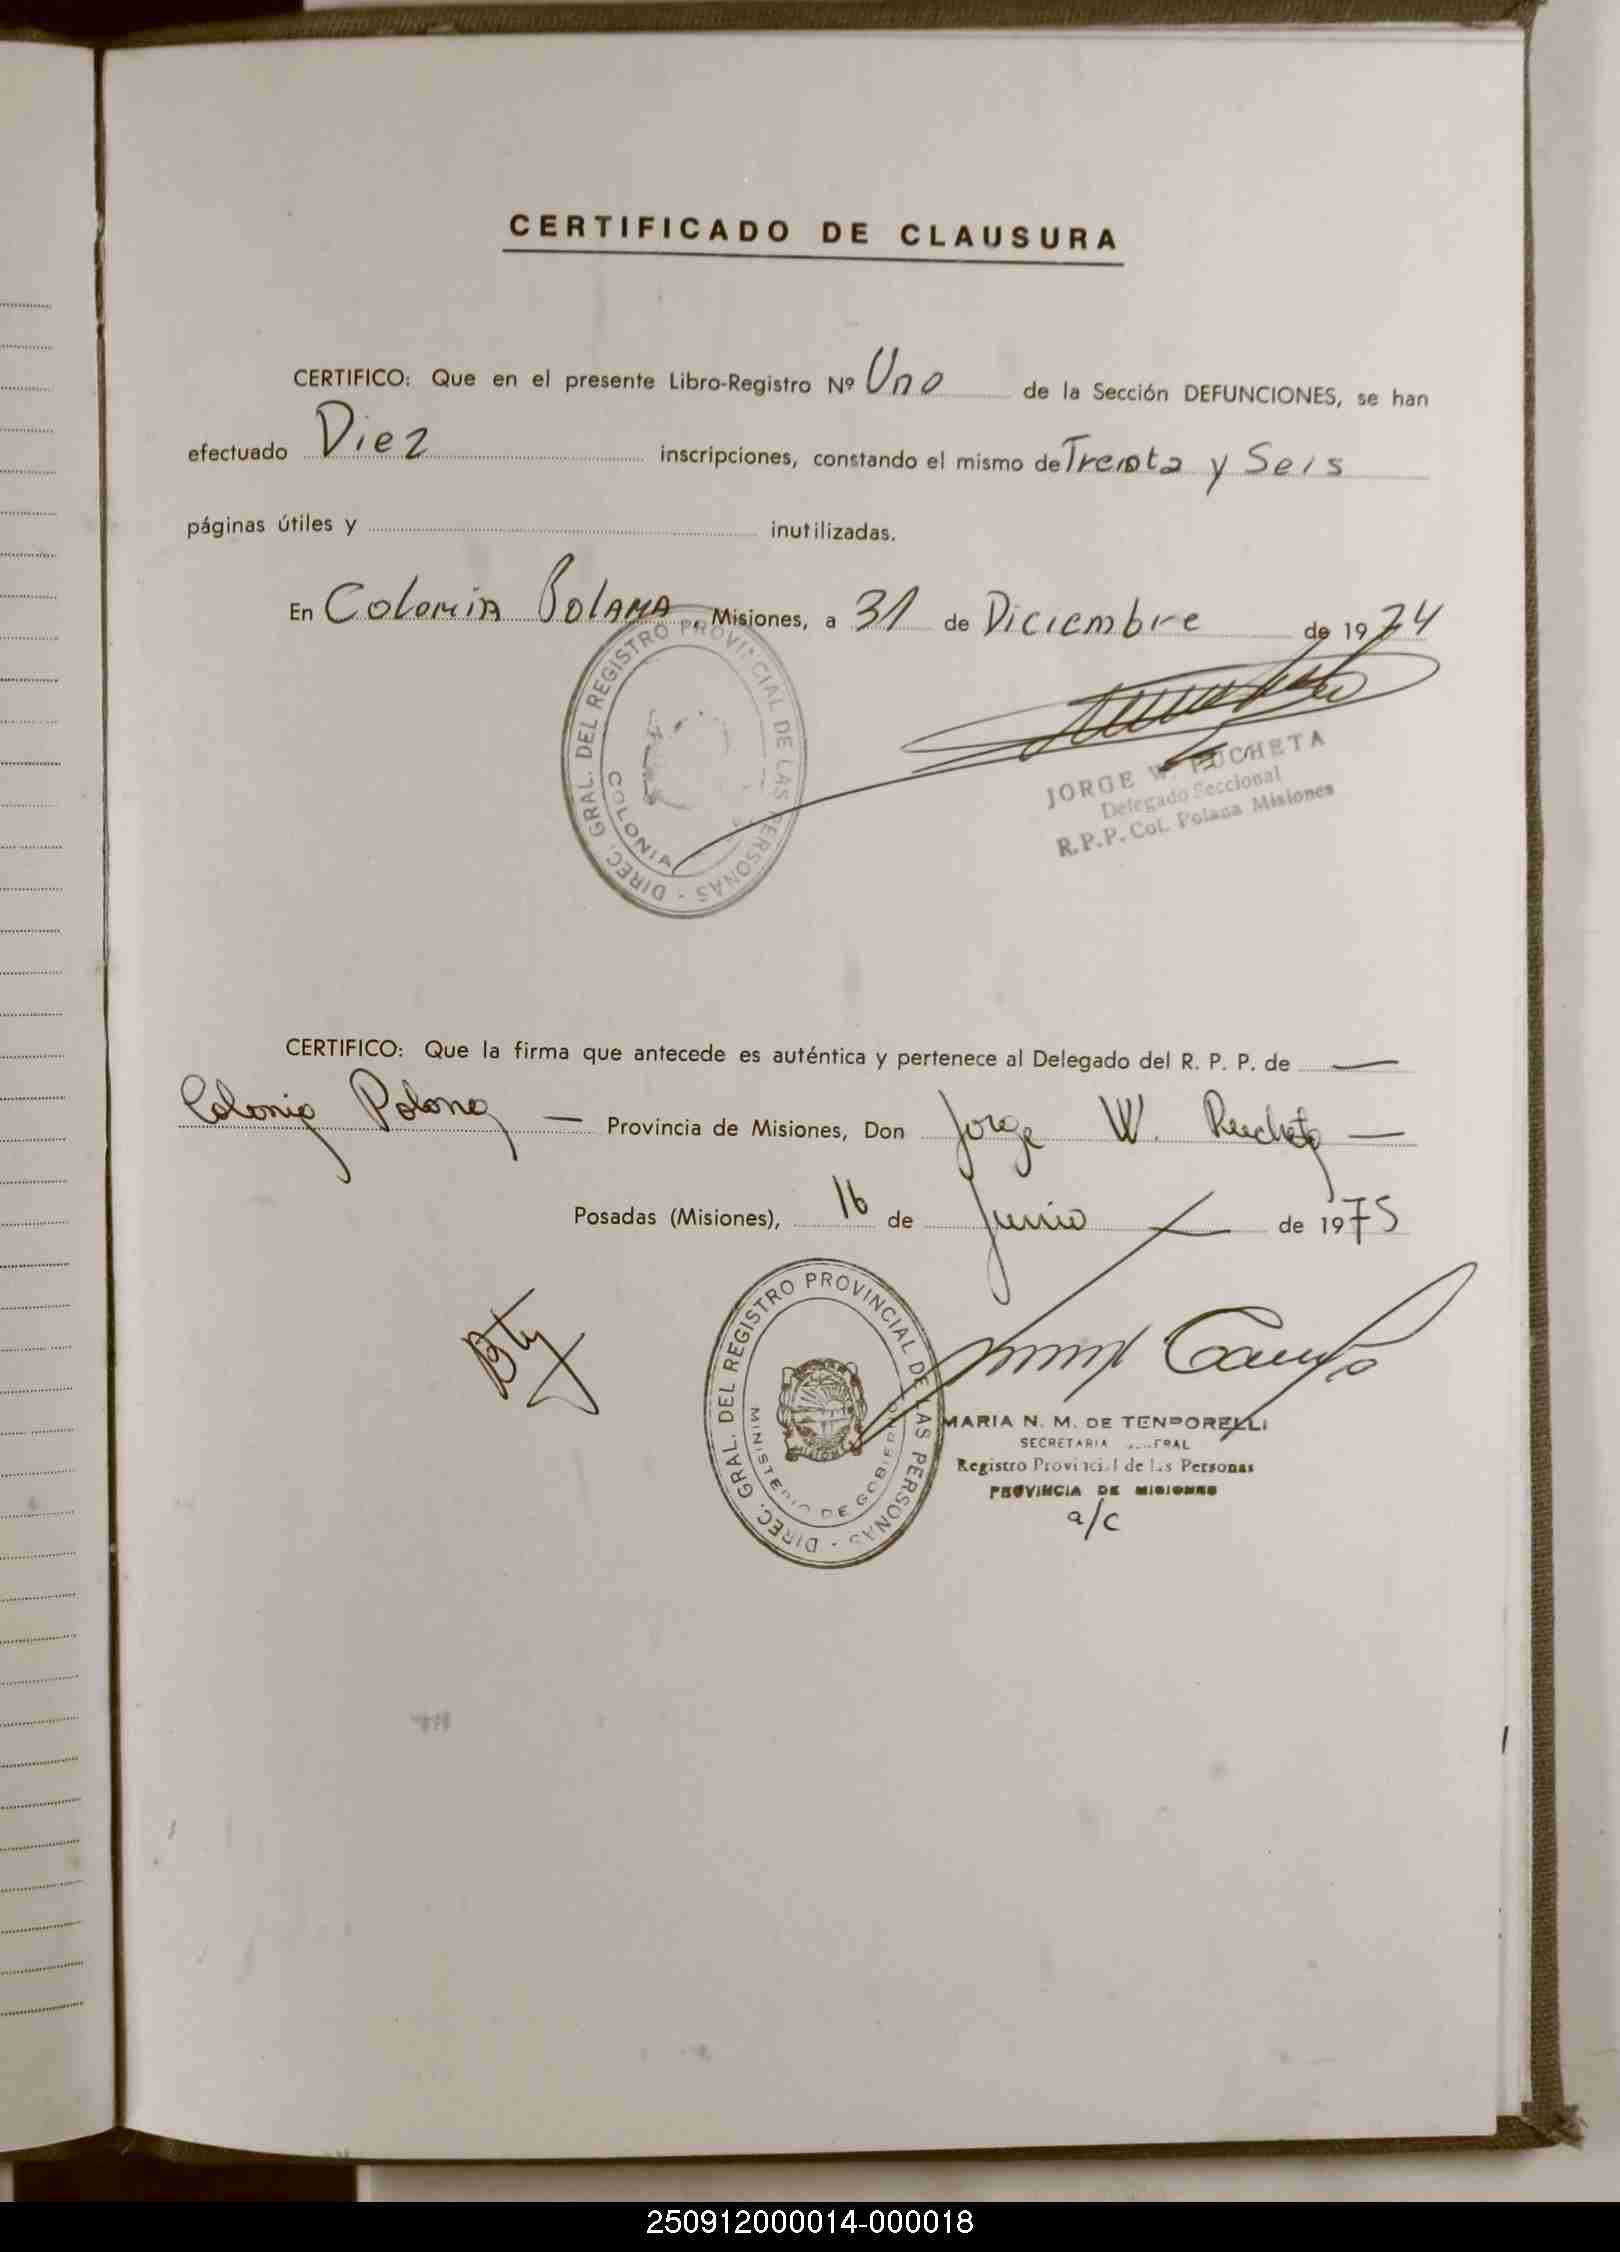 CERTIFICADO DE CLAUSURA
CERTIFICO: Que en el presente Libro-Registro Nº Uno de la Sección DEFUNCIONES, se han
efectuado Diez inscripciones, constando el mismo de Treinta y Seis
páginas útiles y inutilizadas.
En Colonia Polana, Misiones, a 31 de Diciembre de 1974
DIREC. GRAL. DEL REGISTRO PROVINCIAL DE LAS PERSONAS
COLONIA
JORGE W. PUCHETA
Delegado Seccional
R.P.P. Col. Polana Misiones
CERTIFICO: Que la firma que antecede es auténtica y pertenece al Delegado del R. P. P. de —
Colonia Polana — Provincia de Misiones, Don Jorge W. Pucheta —
Posadas (Misiones), 16 de Junio — de 1975
DIREC. GRAL. DEL REGISTRO PROVINCIAL DE LAS PERSONAS
MINISTERIO DE GOBIERNO
MARIA N. M. DE TEMPORELLI
SECRETARIA GENERAL
Registro Provincial de las Personas
PROVINCIA DE MISIONES
a/c
250912000014-000018